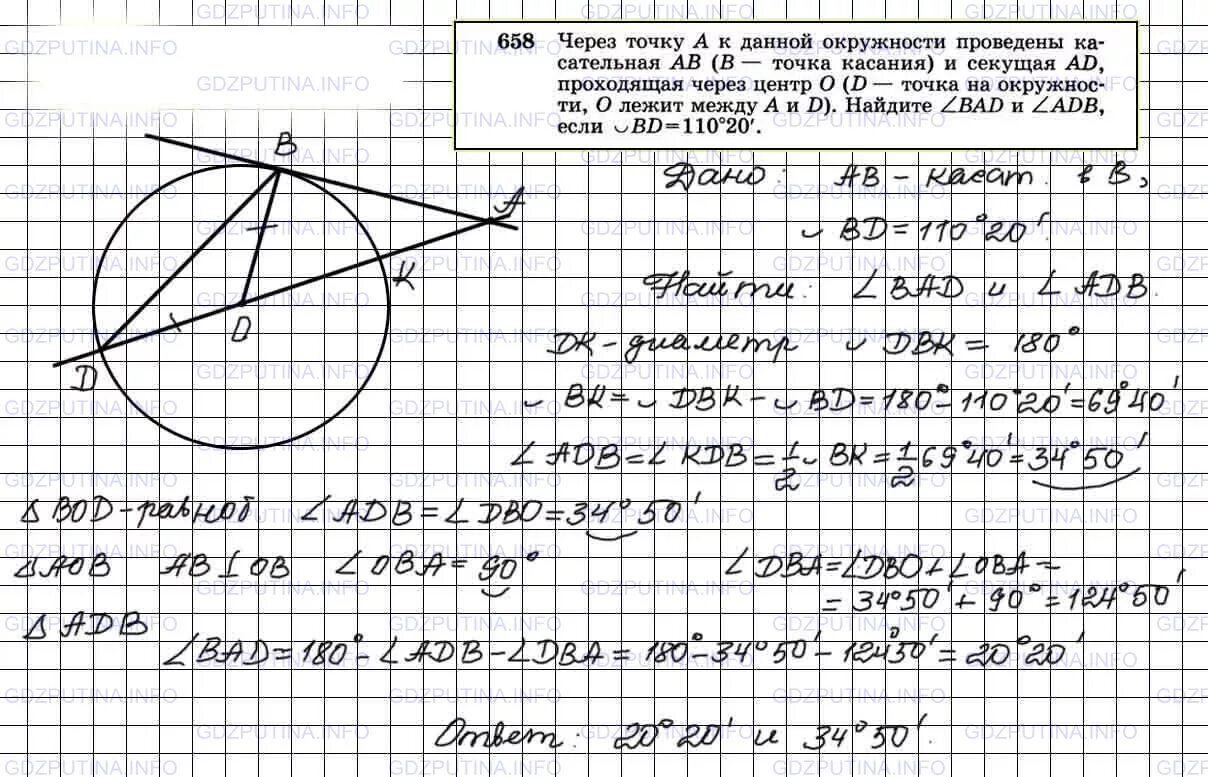 658 Через точку A к данной окружности проведены ка-
сательная AB (B — точка касания) и секущая AD,
проходящая через центр O (D — точка на окружнос-
ти, O лежит между A и D). Найдите ∠BAD и ∠ADB,
если ◡BD=110°20′.
B
A
K
O
D
Дано: AB - касат. в B,
◡ BD = 110°20′.
Найти: ∠ BAD и ∠ ADB.
DK - диаметр ◡ DBK = 180°
◡ BK = ◡ DBK - ◡ BD = 180° - 110°20′ = 69°40′
∠ ADB = ∠ KDB = 1/2 ◡ BK = 1/2 69°40′ = 34°50′
△ BOD - равноб ∠ ADB = ∠ DBO = 34°50′
△ AOB AB ⊥ OB ∠ OBA = 90°
∠ DBA = ∠DBO + ∠OBA =
= 34°50′ + 90° = 124°50′
△ ADB
∠BAD = 180° - ∠ADB - ∠DBA = 180° - 34°50′ - 124°50′ = 20°20′
Ответ: 20°20′ и 34°50′.
GDZPUTINA.INFO